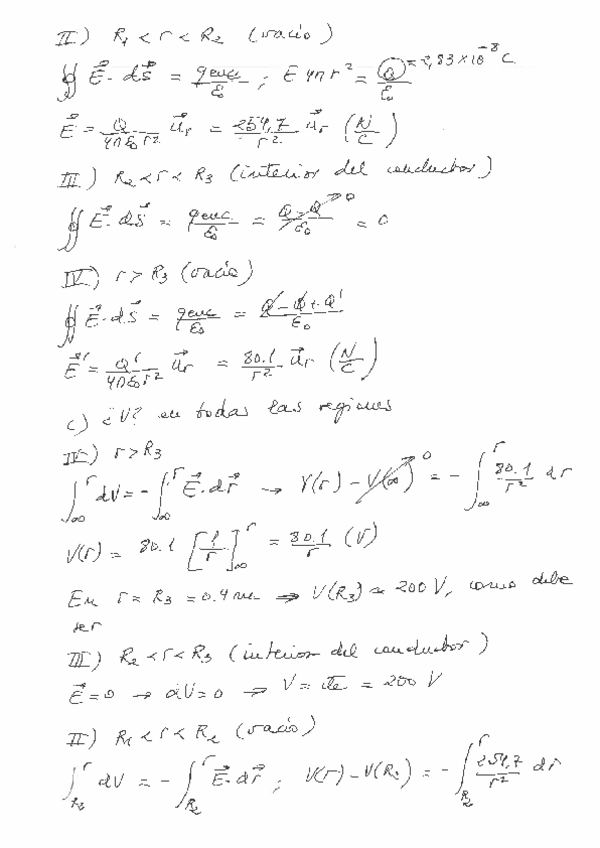 II) R₁ < r < R₂ (vacío)
∯ E⃗·dS⃗ = q enc/ε₀ ; E 4π r² = Q/ε₀ Q = 2,83×10⁻⁸ C
E⃗ = Q/(4πε₀ r²) u⃗r = 254,7/r² u⃗r (N/C)
III) R₂ < r < R₃ (interior del conductor)
∯ E⃗·dS⃗ = q enc/ε₀ = (Q - Q)/ε₀ → 0 = 0
IV) r > R₃ (vacío)
∯ E⃗·dS⃗ = q enc/ε₀ = (Q - Q + Q')/ε₀
E⃗' = Q'/(4πε₀ r²) u⃗r = 80.1/r² u⃗r (N/C)
c) ¿V? en todas las regiones
IV) r > R₃
∫_∞^r dV = - ∫_∞^r E⃗·dr⃗ → V(r) - V(∞)→0 = - ∫_∞^r 80.1/r² dr
V(r) = 80.1 [1/r]_∞^r = 80.1/r (V)
En r = R₃ = 0.4 m → V(R₃) ≈ 200 V, como debe
ser
III) R₂ < r < R₃ (interior del conductor)
E⃗ = 0 → dV = 0 → V = cte = 200 V
II) R₁ < r < R₂ (vacío)
∫_R₂^r dV = - ∫_R₂^r E⃗·dr⃗ ; V(r) - V(R₂) = - ∫_R₂^r 254,7/r² dr